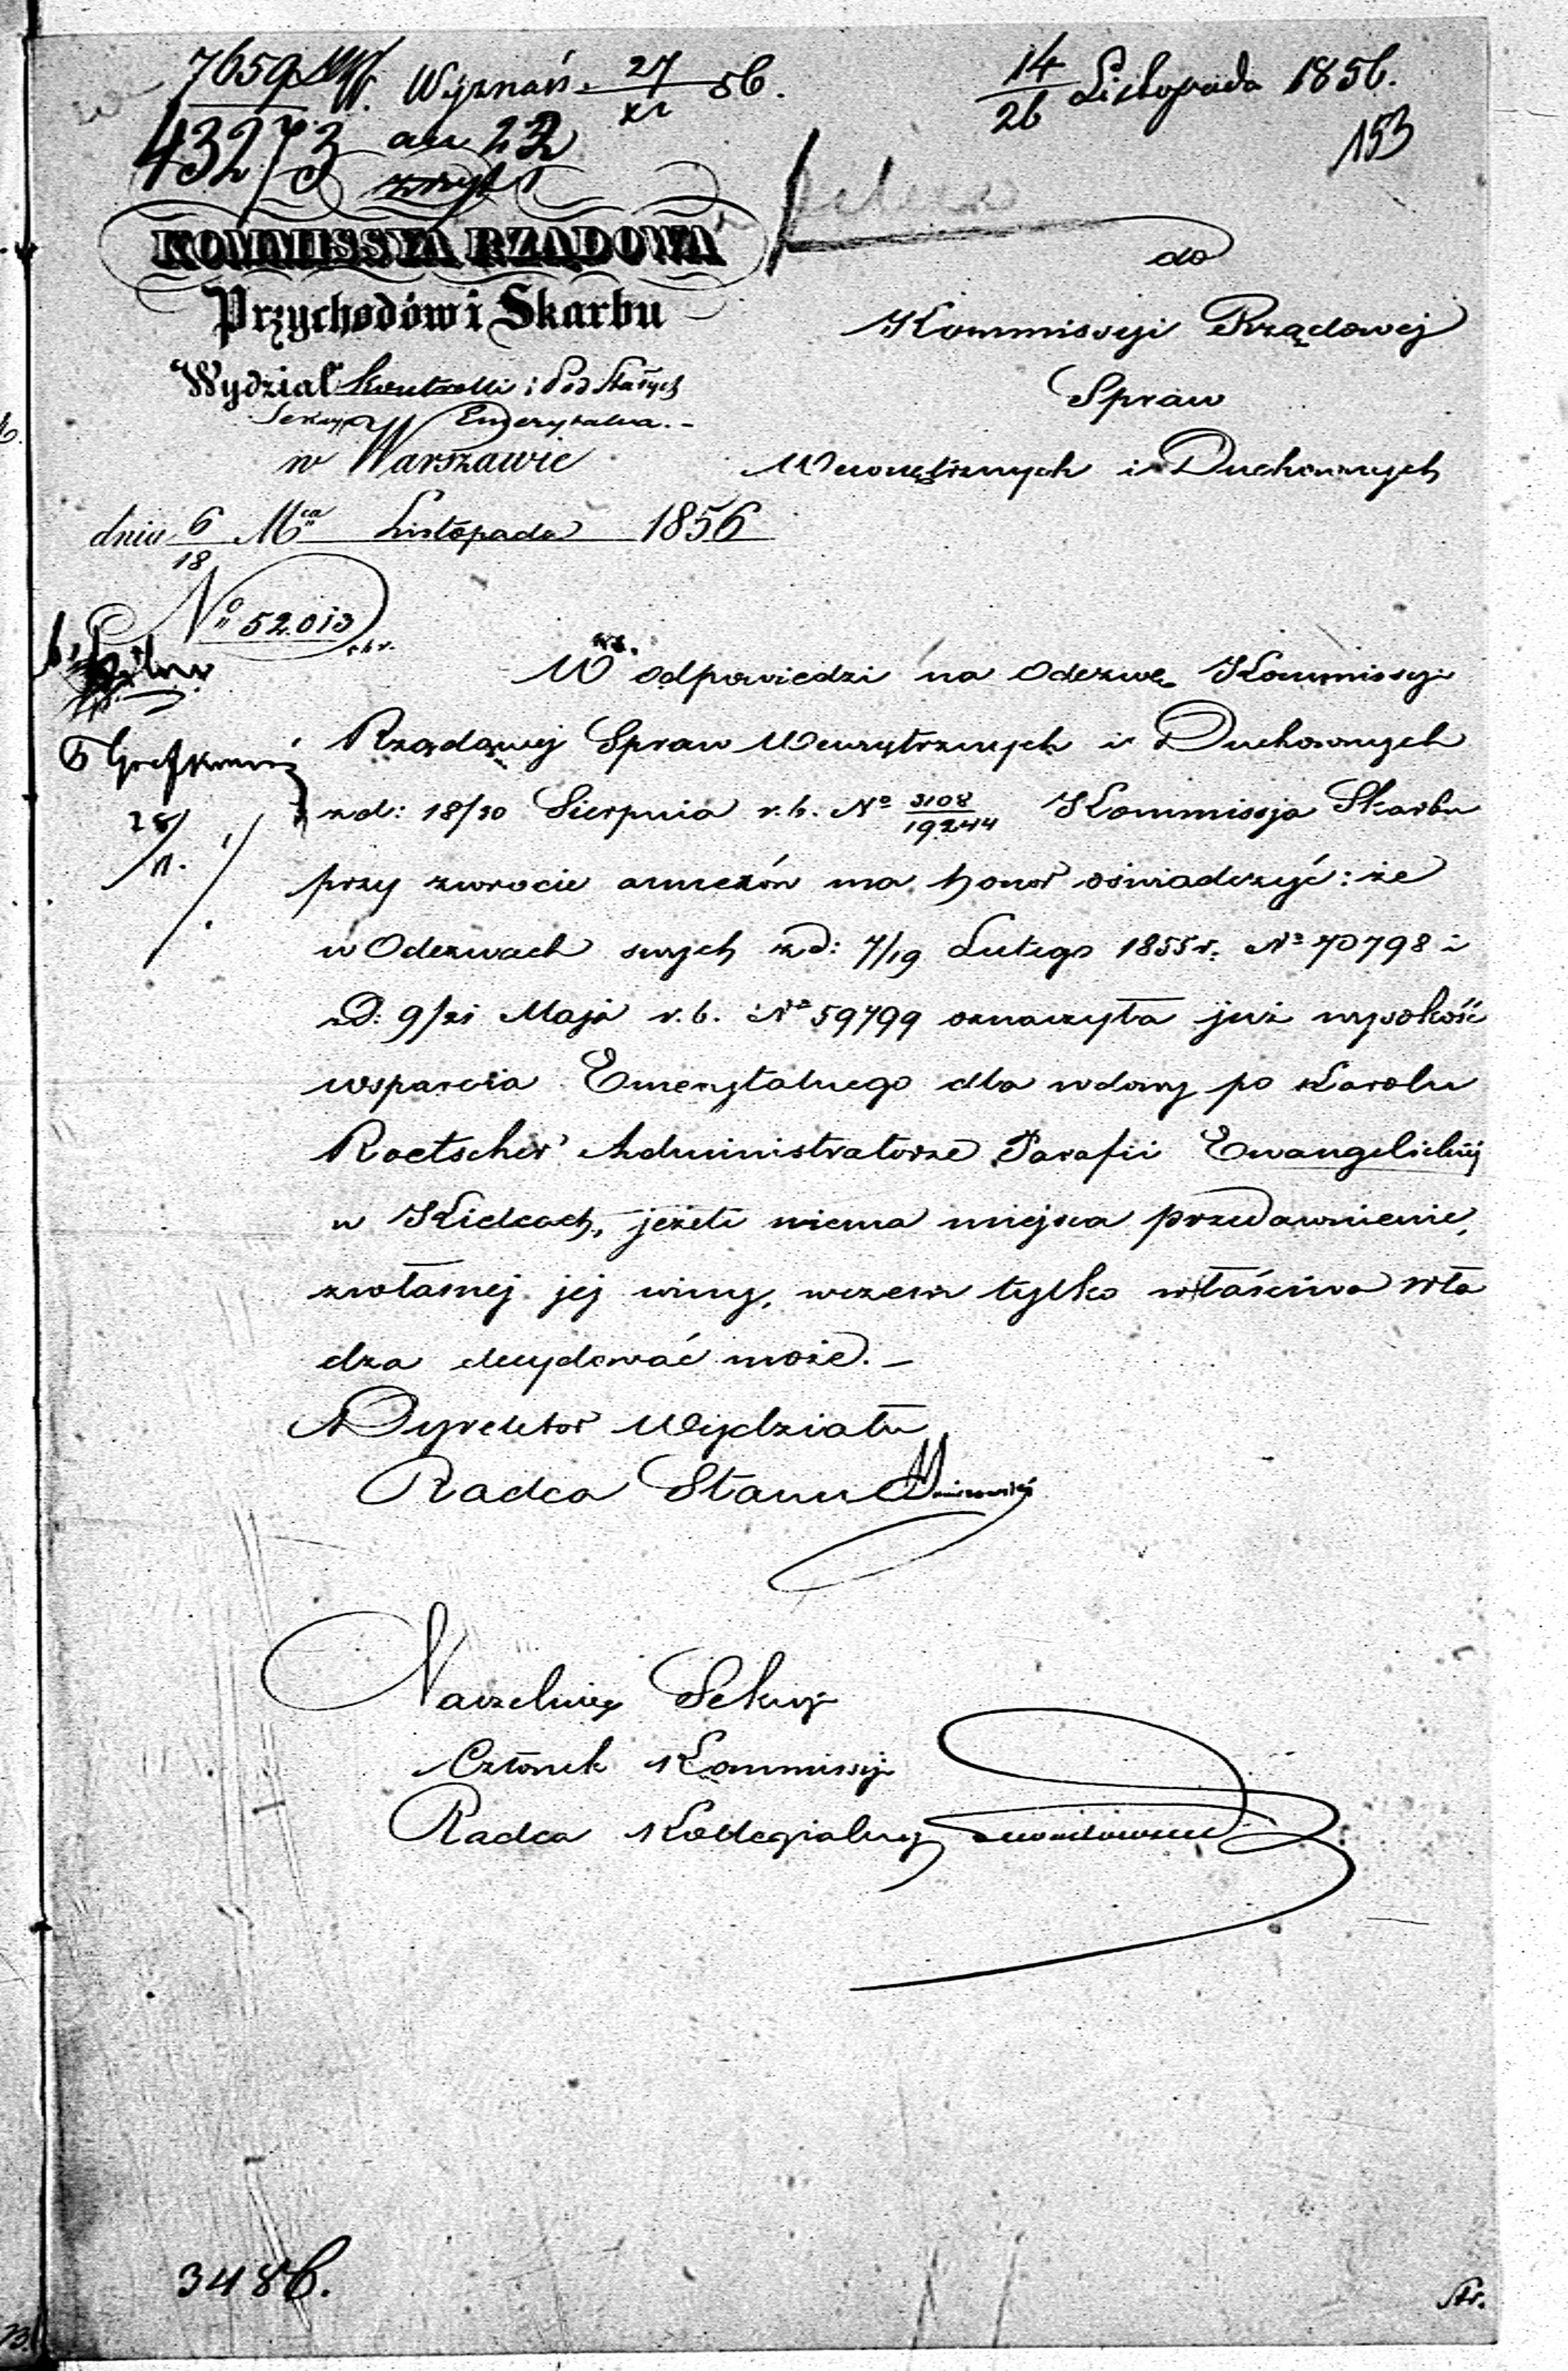 7659 Wyznań. 27/XI 56.
14/26 Listopada 1856.
43273 au 22
153
KOMMISSYA RZĄDOWA
Przychodów i Skarbu
Wydział Kontrolli i Pod Stałych
Sekcya Emerytalna.-
w Warszawie
dnia 6/18 Mca Listopada 1856
No 52.013
do
Kommissyi Rządowej
Spraw
Wewnętrznych i Duchownych
28/11.
W odpowiedzi na Odezwę Kommissyi
Rządowej Spraw Wewnętrznych i Duchownych
z d: 18/30 Sierpnia r. b. No 3108/19244 Kommissja Skarbu
przy zwrocie annexów ma honor oświadczyć: że
w Odezwach swych z d: 7/19 Lutego 1855 r. No 70798 i
z D: 9/21 Maja r. b. No 59799 oznaczyła już wysokość
wsparcia Emerytalnego dla wdowy po Karolu
Roetscher Administratorze Parafii Ewangelickiej
w Kielcach, jeżeli niema miejsca przedawnienie,
z własnej jej winy, w czem tylko właściwa Wła
dza decydować może. _
Dyrektor Wydziału
Radca Stanu
Naczelnik Sekcyi
Członek Kommissyi
Radca Kollegialny
3486.